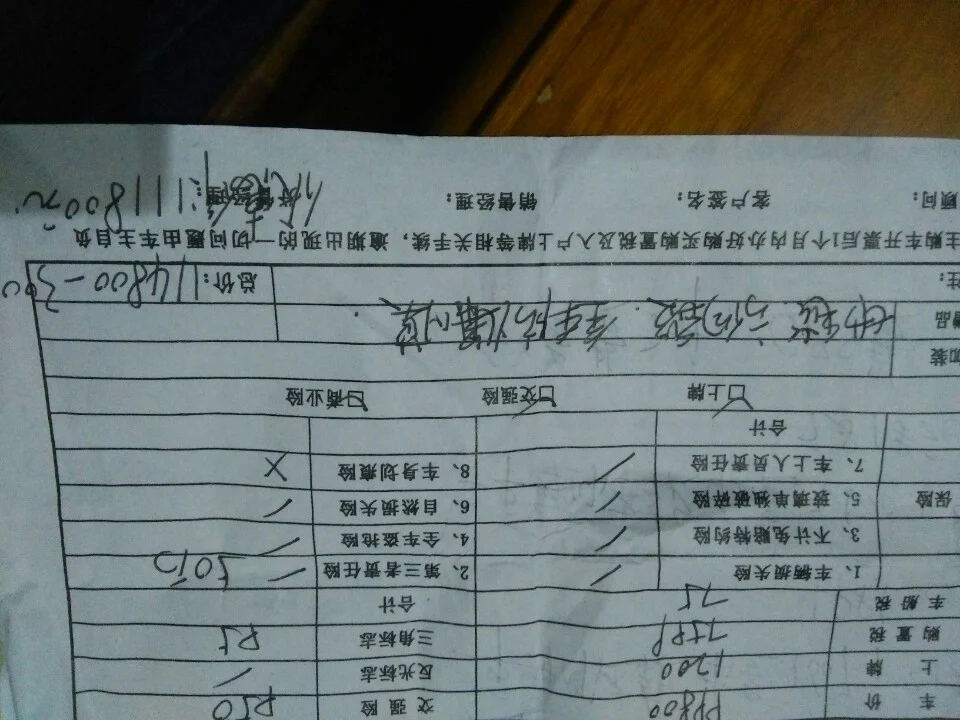 车价 99800 交强险 950
上牌 1200 反光标志 /
购置税 三角标志
车船税 合计
保险
1、车辆损失险 ✓ 2、第三者责任险 ✓ 50万
3、不计免赔特约险 ✓ 4、全车盗抢险 ✓
5、玻璃单独破碎险 ✓ 6、自然损失险 ✓
7、车上人员责任险 ✓ 8、车身划痕险 X
合计
☑上牌 ☑交强险 ☑商业险
加装
赠品 全车防爆膜
注: 总价:114800-3000
主购车开票后1个月内办好购买购置税及入户上牌等相关手续，逾期出现的一切问题由车主自负
顾问: 客户签名: 销售经理: 111800元